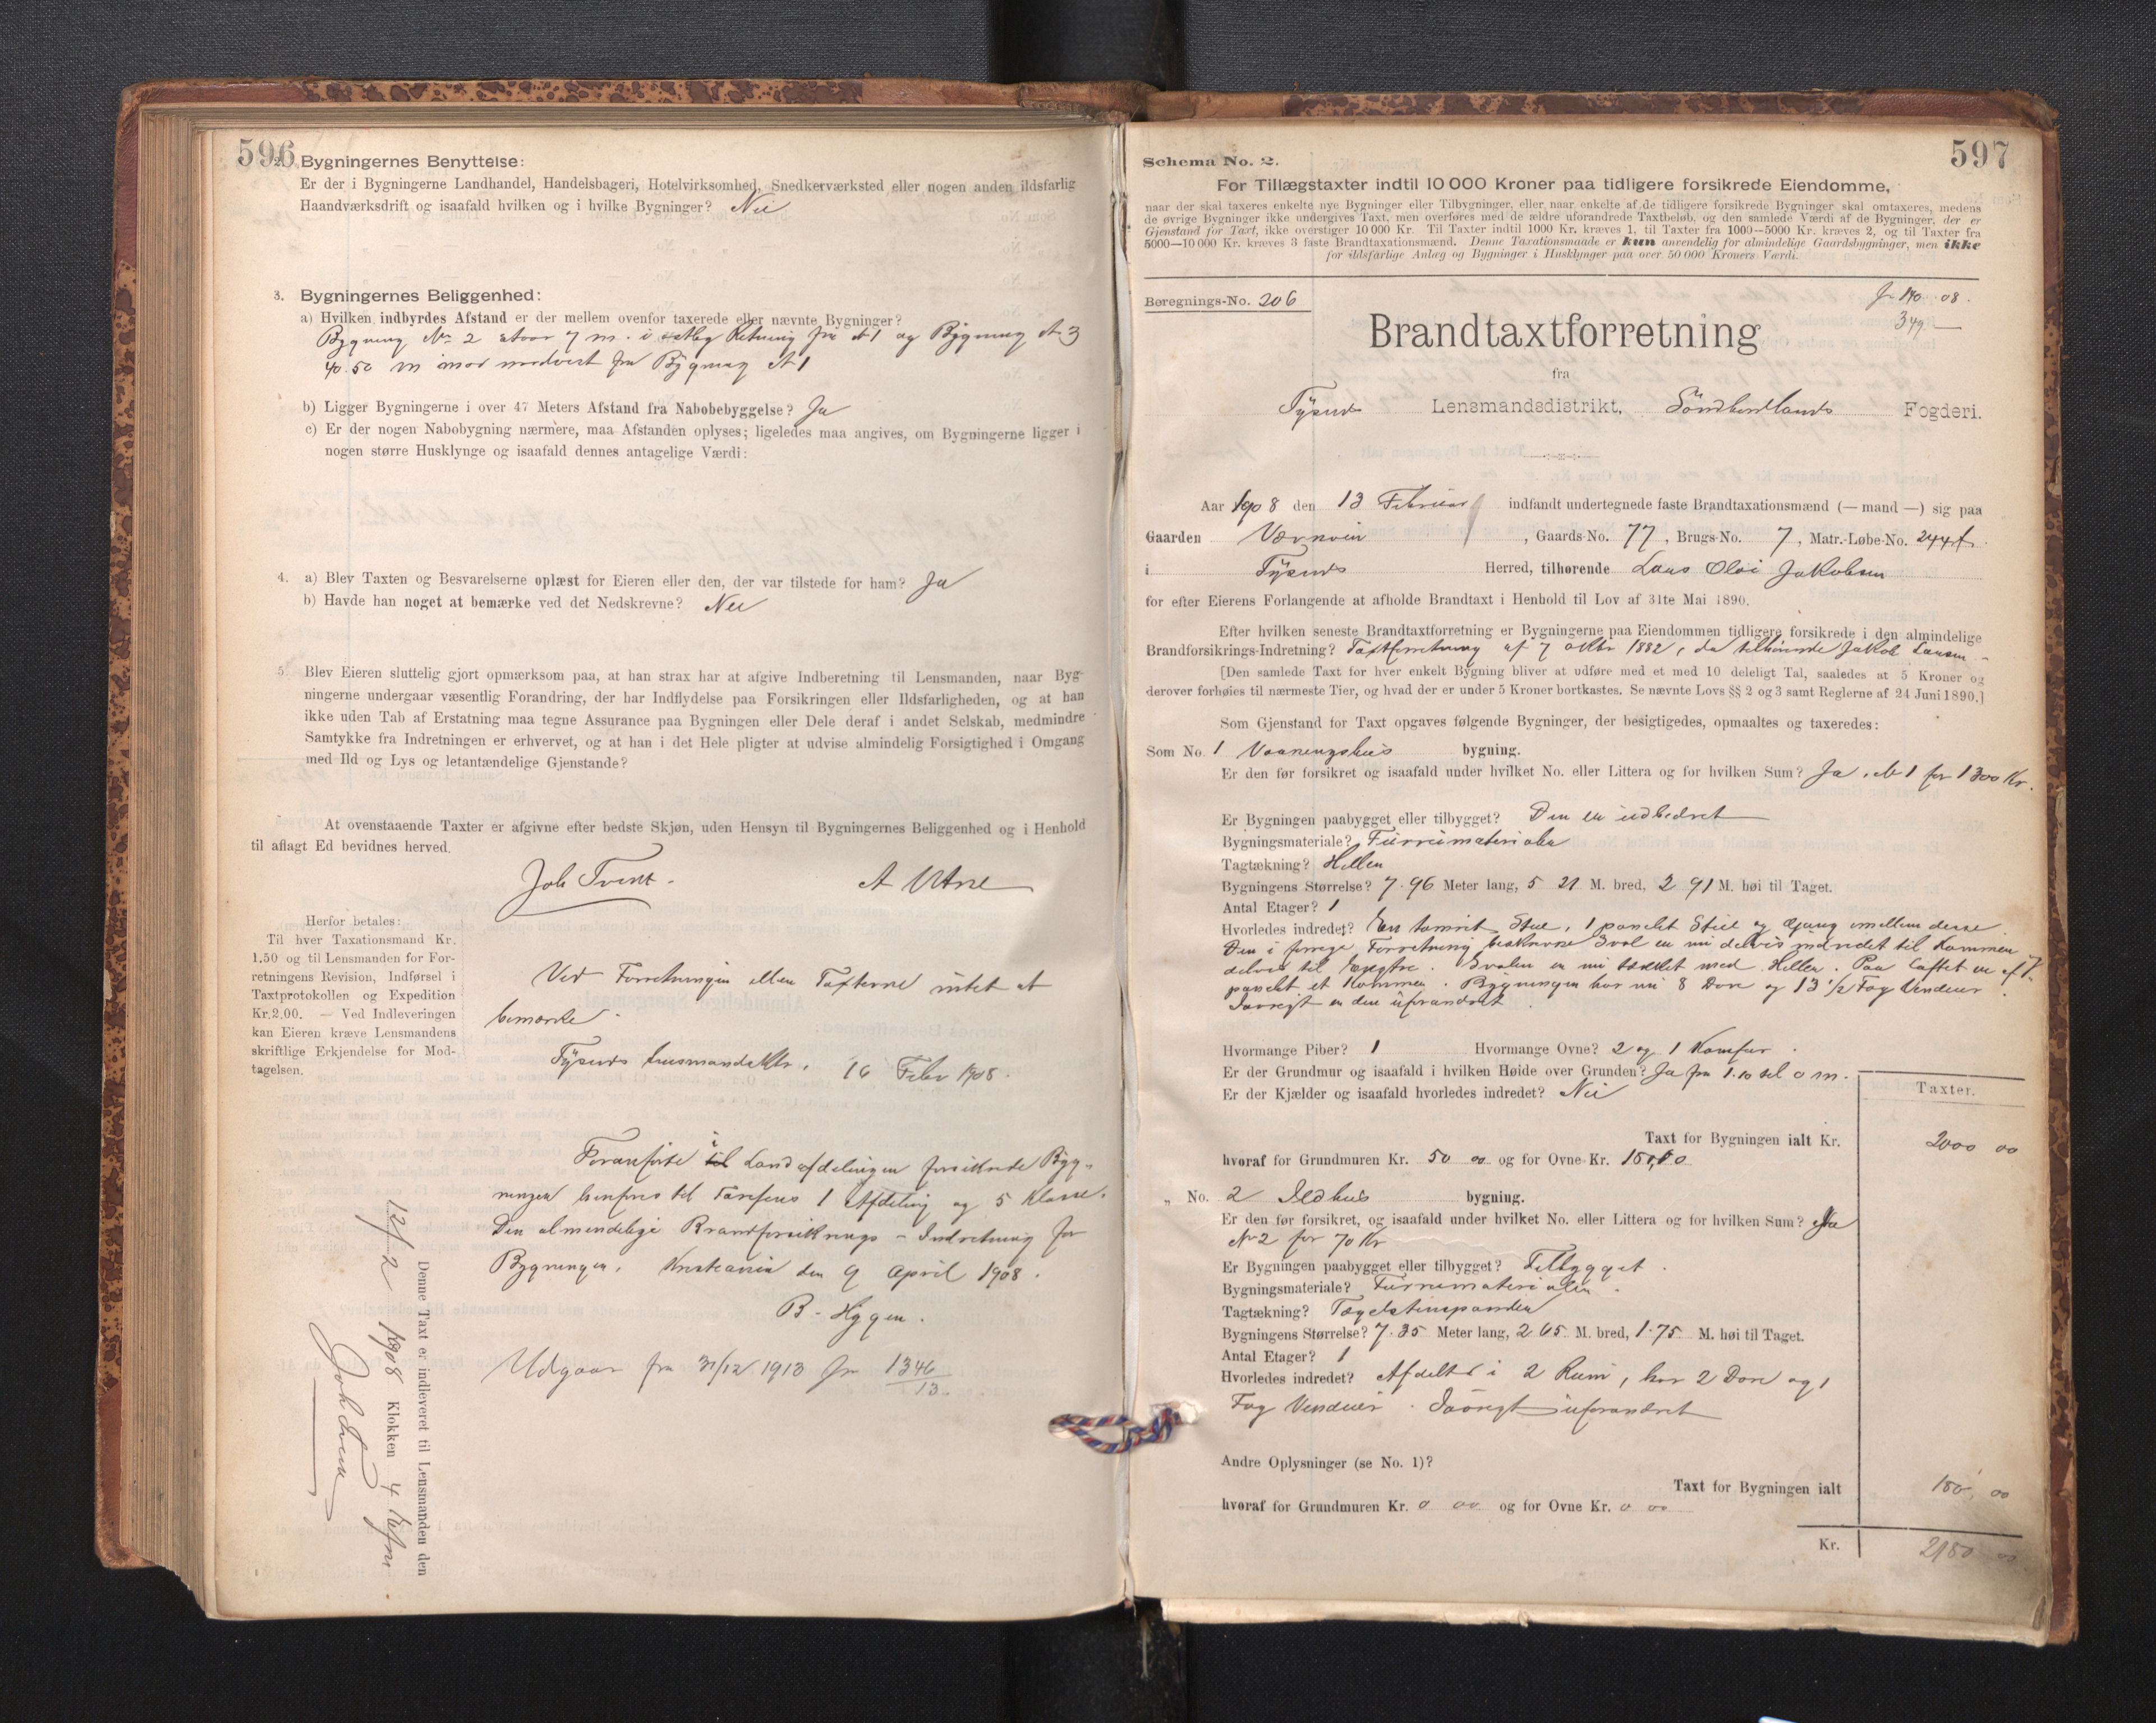 596
2. Bygningernes Benyttelse:
Er der i Bygningerne Landhandel, Handelsbageri, Hotelvirksomhed, Snedkerværksted eller nogen anden ildsfarlig
Haandværksdrift og isaafald hvilken og i hvilke Bygninger? Nei
3. Bygningernes Beliggenhed:
a) Hvilken indbyrdes Afstand er der mellem ovenfor taxerede eller nævnte Bygninger?
Bygning No 2 staar 7 m. i Retning fra No 1 og Bygning No 3
40.50 m mod nordvest fra Bygning No 1
b) Ligger Bygningerne i over 47 Meters Afstand fra Nabobebyggelse? Ja
c) Er der nogen Nabobygning nærmere, maa Afstanden oplyses; ligeledes maa angives, om Bygningerne ligger i
nogen større Husklynge og isaafald dennes antagelige Værdi:
4. a) Blev Taxten og Besvarelserne oplæst for Eieren eller den, der var tilstede for ham? Ja
b) Havde han noget at bemærke ved det Nedskrevne? Nei
5. Blev Eieren sluttelig gjort opmærksom paa, at han strax har at afgive Indberetning til Lensmanden, naar Byg-
ningerne undergaar væsentlig Forandring, der har Indflydelse paa Forsikringen eller Ildsfarligheden, og at han
ikke uden Tab af Erstatning maa tegne Assurance paa Bygningen eller Dele deraf i andet Selskab, medmindre
Samtykke fra Indretningen er erhvervet, og at han i det Hele pligter at udvise almindelig Forsigtighed i Omgang
med Ild og Lys og letantændelige Gjenstande?
At ovenstaaende Taxter er afgivne efter bedste Skjøn, uden Hensyn til Bygningernes Beliggenhed og i Henhold
til aflagt Ed bevidnes herved.
Joh Tveit. A Utne
Herfor betales:
Til hver Taxationsmand Kr.
1.50 og til Lensmanden for For-
retningens Revision, Indførsel i
Taxtprotokollen og Expedition
Kr. 2.00. — Ved Indleveringen
kan Eieren kræve Lensmandens
skriftlige Erkjendelse for Mod-
tagelsen.
Ved Forretningen eller Taxterne intet at
bemærke.
Tysnes Lensmandsktr. 16 Febr 1908.
Foranførte til i Landafdelingen forsikrede Byg-
ninger henføres til Tarifens 1 Afdeling og 5 Klasse.
Den almindelige Brandforsikrings-Indretning for
Bygninger. Kristiania den 9 April 1908.
B. Hygen.
Udgaar fra 31/12 1913 Jr 1346/13.
Denne Taxt er indleveret til Lensmanden den
12/2 1908 Klokken 4 Eftm
Joh Tveit
597
Schema No. 2.
For Tillægstaxter indtil 10 000 Kroner paa tidligere forsikrede Eiendomme,
naar der skal taxeres enkelte nye Bygninger eller Tilbygninger, eller naar enkelte af de tidligere forsikrede Bygninger skal omtaxeres, medens
de øvrige Bygninger ikke undergives Taxt, men overføres med de ældre uforandrede Taxtbeløb, og den samlede Værdi af de Bygninger, der er
Gjenstand for Taxt, ikke overstiger 10 000 Kr. Til Taxter indtil 1000 Kr. kræves 1, til Taxter fra 1000—5000 Kr. kræves 2, og til Taxter fra
5000—10 000 Kr. kræves 3 faste Brandtaxationsmænd. Denne Taxationsmaade er kun anvendelig for almindelige Gaardsbygninger, men ikke
for ildsfarlige Anlæg og Bygninger i Husklynger paa over 50 000 Kroners Værdi.
Beregnings-No. 206
08.
349
Brandtaxtforretning
fra
Tysnes Lensmandsdistrikt, Søndhordlands Fogderi.
Aar 1908 den 13 Februar indfandt undertegnede faste Brandtaxationsmænd (— mand —) sig paa
Gaarden Vernvin, Gaards-No. 77, Brugs-No. 7, Matr.-Løbe-No. 244
i Tysnes Herred, tilhørende Lars Olai Jakobsen
for efter Eierens Forlangende at afholde Brandtaxt i Henhold til Lov af 31te Mai 1890.
Efter hvilken seneste Brandtaxtforretning er Bygningerne paa Eiendommen tidligere forsikrede i den almindelige
Brandforsikrings-Indretning? Taxtforretning af 7 oktbr 1882, da tilhørende Jakob Larsen
[Den samlede Taxt for hver enkelt Bygning bliver at udføre med et med 10 deleligt Tal, saaledes at 5 Kroner og
derover forhøies til nærmeste Tier, og hvad der er under 5 Kroner bortkastes. Se nævnte Lovs §§ 2 og 3 samt Reglerne af 24 Juni 1890.]
Som Gjenstand for Taxt opgaves følgende Bygninger, der besigtigedes, opmaaltes og taxeredes:
Som No. 1 Vaaningshus bygning.
Er den før forsikret og isaafald under hvilket No. eller Littera og for hvilken Sum? Ja, No 1 for 1300 Kr.
Er Bygningen paabygget eller tilbygget? Den er udbedret
Bygningsmateriale? Furrumaterialer
Tagtækning? Heller
Bygningens Størrelse? 7.96 Meter lang, 5 21 M. bred, 2 91 M. høi til Taget.
Antal Etager? 1
Hvorledes indredet? En tømret Stue, 1 panelet Stue og Gang imellem disse.
Den i forrige Forretning beskrevne Sval er nu delvis indredet til Kammer
delvis til Svalen er nu tækket med Heller. Paa Loftet er af
panelet et Kammer. Bygningen har nu 8 Døre og 13 1/2 Fag Vinduer.
Iøvrigt er den uforandret.
Hvormange Piber? 1 Hvormange Ovne? 2 og 1 Komfur.
Er der Grundmur og isaafald i hvilken Høide over Grunden? Ja fra 1.10 til 0 m.
Er der Kjælder og isaafald hvorledes indredet? Nei
Taxter.
Taxt for Bygningen ialt Kr. 2000 00
hvoraf for Grundmuren Kr. 50 00 og for Ovne Kr. 150,00
„ No. 2 Ildhus bygning.
Er den før forsikret, og isaafald under hvilket No. eller Littera og for hvilken Sum? Ja
No 2 for 70 Kr
Er Bygningen paabygget eller tilbygget? Tilbygget.
Bygningsmateriale? Furrumaterialer.
Tagtækning? Tagelstenspander
Bygningens Størrelse? 7.35 Meter lang, 2 65 M. bred, 1.75 M. høi til Taget.
Antal Etager? 1
Hvorledes indredet? Afdelt i 2 Rum, har 2 Døre og 1
Fag Vinduer. Iøvrigt uforandret
Andre Oplysninger (se No. 1)?
Taxt for Bygningen ialt 150, 00
hvoraf for Grundmuren Kr. 0 00 og for Ovne Kr. 0 00
Kr. 2150 00